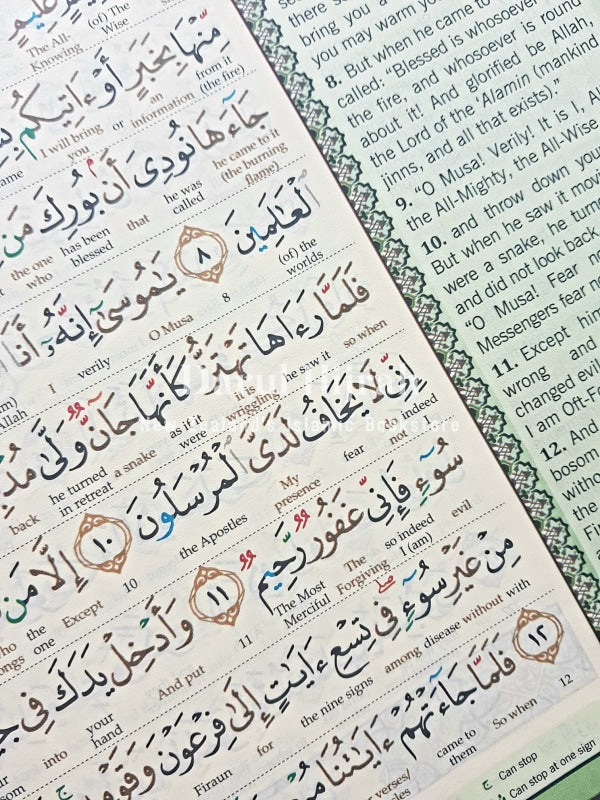 عَلِيمٍ
The All-Knowing (of) The Wise
مِنْهَا بِخَبَرٍ أَوْ ءَاتِيكُم
I will bring you or an information from it (the fire)
جَآءَهَا نُودِىَ أَنۢ بُورِكَ مَن
the one who has been blessed that he was called he came to it (the burning flame)
ٱلْعَٰلَمِينَ ٨ يَٰمُوسَىٰٓ إِنَّهُۥٓ أَنَا
I verily O Musa 8 (of) the worlds
فَلَمَّا رَءَاهَا تَهْتَزُّ كَأَنَّهَا جَآنٌّ وَلَّىٰ
back he turned in retreat a snake as it were it is wriggling he saw it so when
إِنِّى لَا يَخَافُ لَدَىَّ ٱلْمُرْسَلُونَ ١٠ إِلَّا مَن
who the one Except 10 the Apostles My presence fear not indeed I
سُوٓءٍ فَإِنِّى غَفُورٌ رَّحِيمٌ ١١ وَأَدْخِلْ يَدَكَ فِى
into your hand And put 11 The Most Merciful The Forgiving so indeed I (am) evil
مِنْ غَيْرِ سُوٓءٍ فِى تِسْعِ ءَايَٰتٍ إِلَىٰ فِرْعَوْنَ وَقَوْمِهِۦٓ
Firaun for the nine signs among disease without with
١٢ فَلَمَّا جَآءَتْهُمْ ءَايَٰتُنَا
came to them So when 12
bring you
you may warm you
8. But when he came to
called: "Blessed is whosoever
the fire, and whosoever is round
about it! And glorified be Allah,
the Lord of the 'Alamin (mankind
jinns, and all that exists)."
9. "O Musa! Verily! It is I, Al
the All-Mighty, the All-Wise
10. and throw down you
But when he saw it movi
were a snake, he turne
and did not look back.
"O Musa! Fear no
Messengers fear no
11. Except him
wrong and
changed evil
I am Oft-Fo
12. And
bosom
witho
the
ج Can stop
Can stop at one sign
New Zealand's Islamic Bookstore